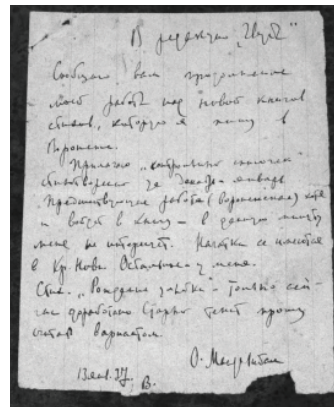 В редакцию „Звезды"
Сообщаю вам продолжение
моей работы над новой книгой
стихов, которую я пишу в
Воронеже.
Прилагаю
стихотворений за декабрь-январь
Предшествующая работа (воронежская) хотя
и войдет в книгу – в данную минуту
меня не интересует. Начатки ее имеются
в Кр. Нови. Остальное – у меня.
Стих. „Рождение улыбки" – только сей-
час доработано Старый текст прошу
считать вариантом.
О. Мандельштам
13 янв. 37. В.